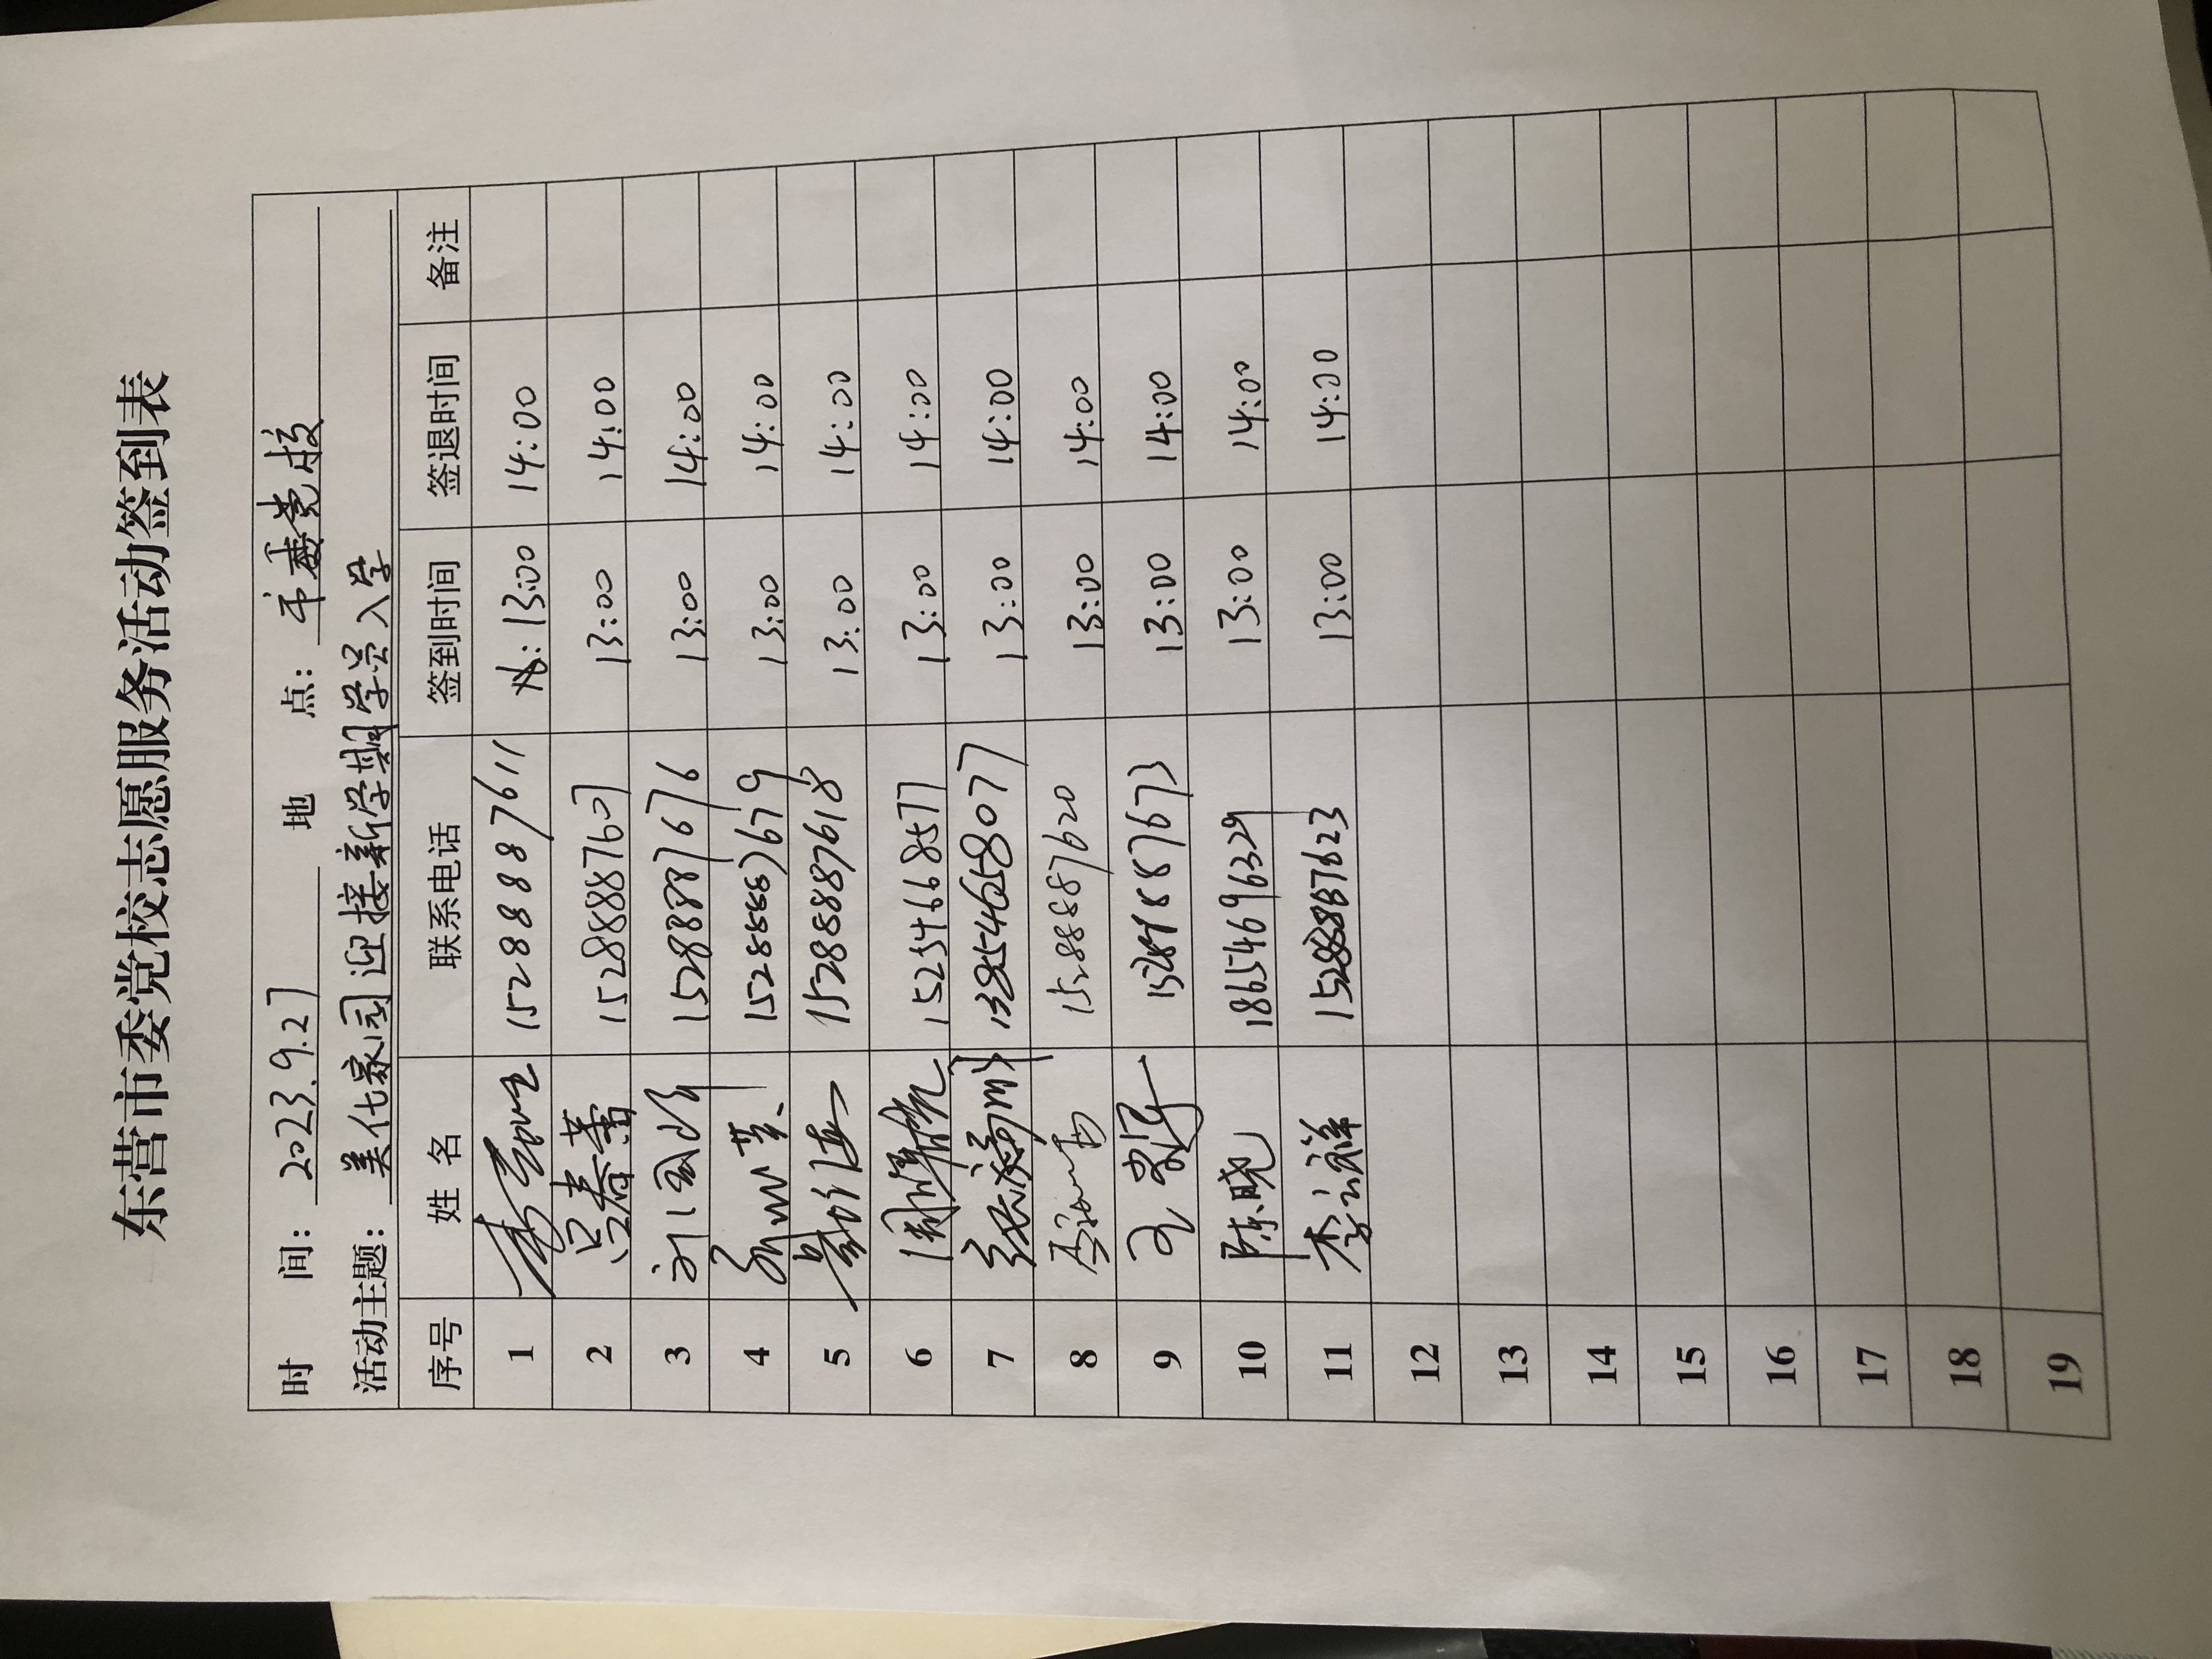 东营市委党校志愿服务活动签到表
时 间: 2023.9.27 地 点: 市委党校
活动主题: 美化家园迎接新学期学员入学
序号 姓 名 联系电话 签到时间 签退时间 备注
1 15288887611 13:00 14:00
2 吕春蕾 15288887607 13:00 14:00
3 15288887676 13:00 14:00
4 15288887679 13:00 14:00
5 15288887618 13:00 14:00
6 15254668577 13:00 14:00
7 13854658077 13:00 14:00
8 15288887620 13:00 14:00
9 13:00 14:00
10 陈晓 18654696329 13:00 14:00
11 李云祥 15288887623 13:00 14:00
12
13
14
15
16
17
18
19